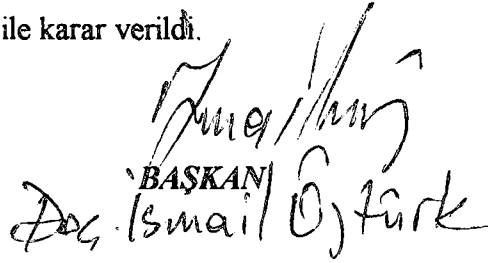 ile karar verildi.
BAŞKAN
Doç. İsmail Öztürk